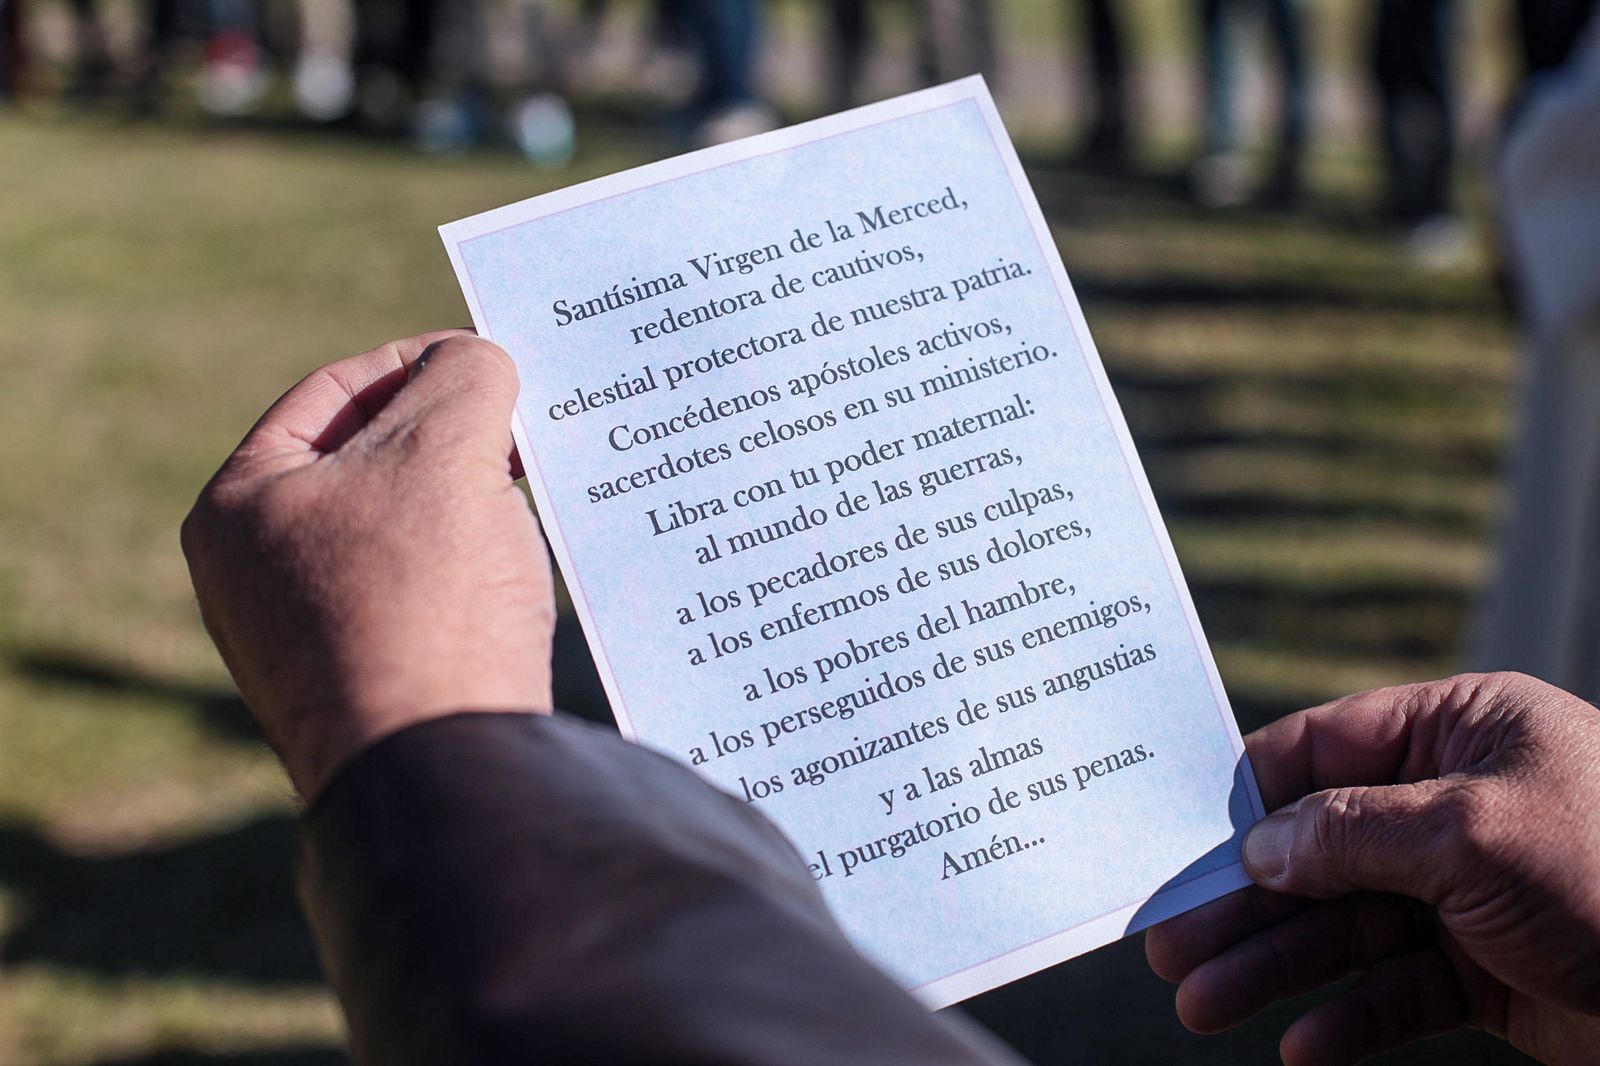 Santísima Virgen de la Merced,
redentora de cautivos,
celestial protectora de nuestra patria.
Concédenos apóstoles activos,
sacerdotes celosos en su ministerio.
Libra con tu poder maternal:
al mundo de las guerras,
a los pecadores de sus culpas,
a los enfermos de sus dolores,
a los pobres del hambre,
a los perseguidos de sus enemigos,
los agonizantes de sus angustias
y a las almas
el purgatorio de sus penas.
Amén...